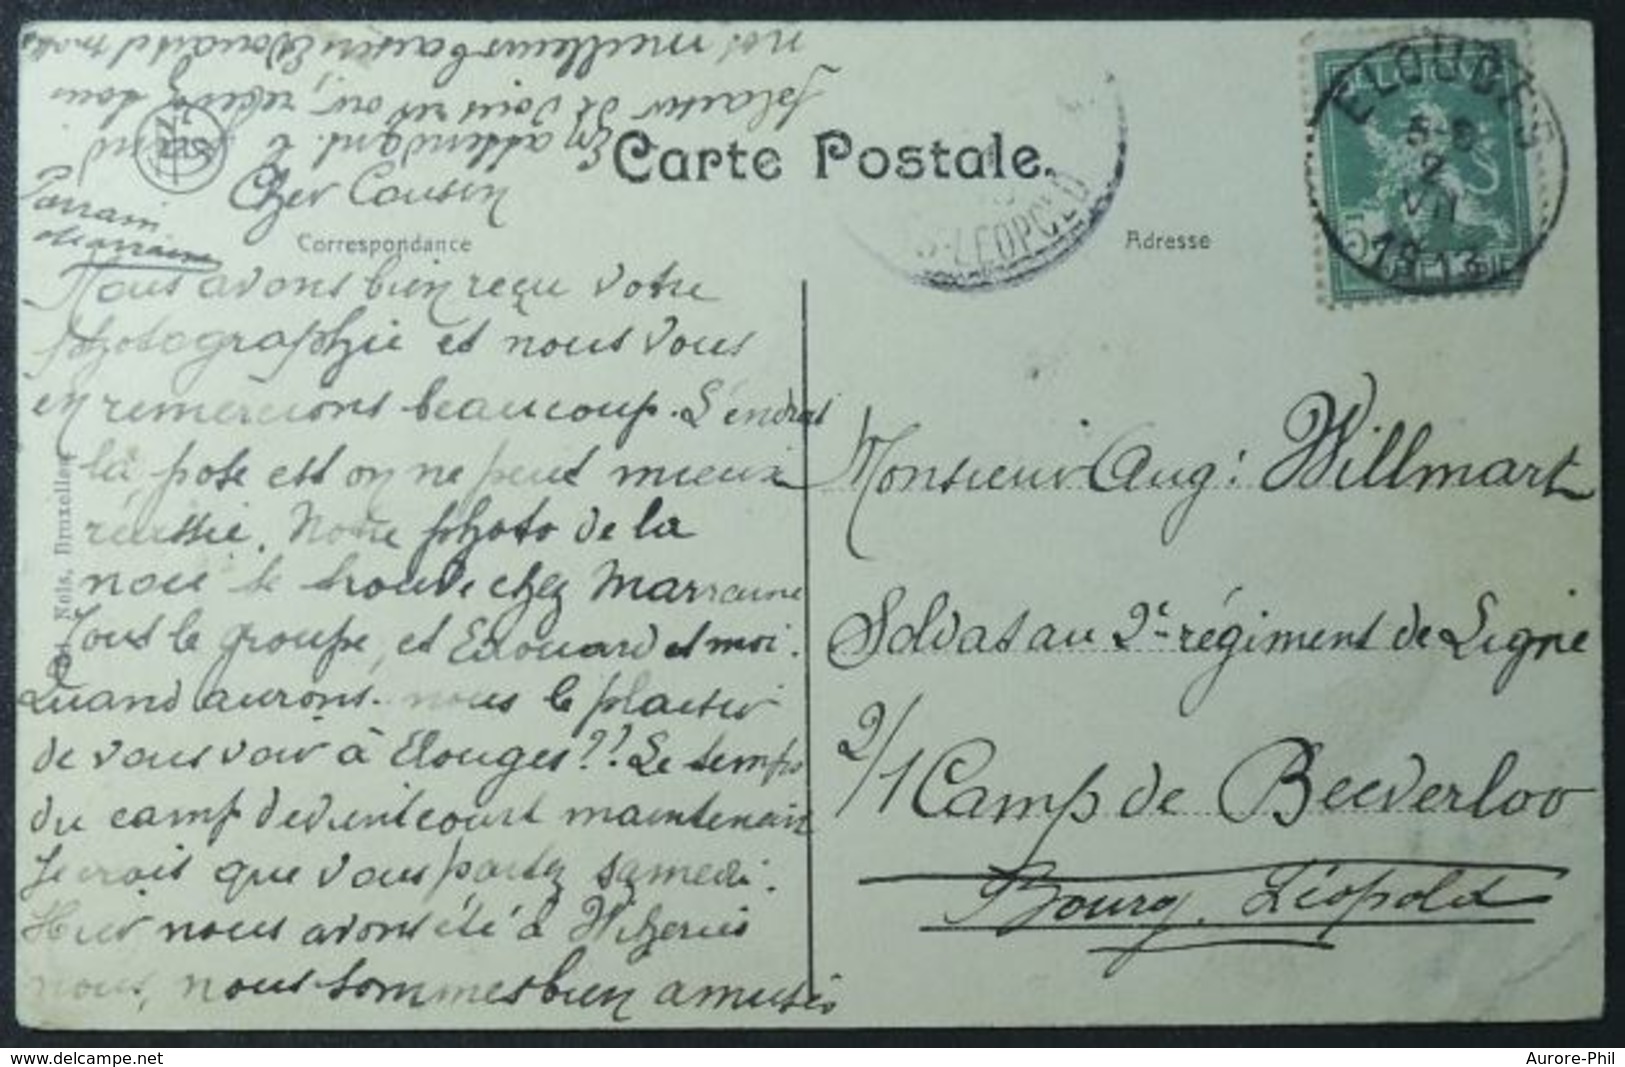 Carte Postale.
Correspondance
Adresse
Cher Cousin
Parrain
Marraine
Nous avons bien reçu votre
photographie et nous vous
en remercions beaucoup. L'endroit
la pose est on ne peut mieux
réussie. Notre photo de la
noce se trouve chez Marraine
Tout le groupe, et Edouard et moi.
Quand aurons-nous le plaisir
de vous voir à Elouges?? Le temps
du camp devient court maintenant
Je crois que vous partez samedi.
Hier nous avons été à
nous, nous sommes bien amusés
En attendant le grand
plaisir de vous revoir, recevez tous
nos meilleurs baisers Edouard et moi
Monsieur Aug: Willmart
Soldat au 2e régiment de Ligne
2/1 Camp de Beeverloo
Bourg. Léopold
ELOUGES
5-6
2
VII
1913
5
Nels, Bruxelles
-LEOPOLD
www.delcampe.net
Aurore-Phil